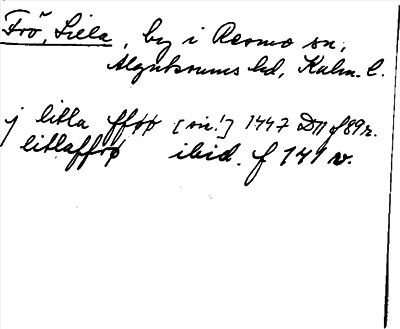 Frö, Lilla, by i Resmo sn,
Algutsrums hd, Kalm. l.
j litla fføø [sic!] 1447 D11 f 89 r.
litlaffrø ibid. f 141 v.